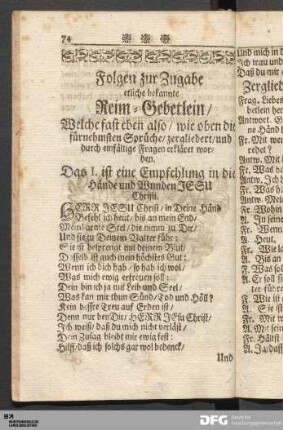 74
Folgen zur Zugabe
etliche bekannte
Reim-Gebetlein/
Welche fast eben also/ wie oben die
fürnehmsten Sprüche/ zergliedert/ und
durch einfältige Fragen erkläret wor-
den.
Das I. ist eine Empfehlung in die
Hände und Wunden JESU
Christi.
HERR JESU Christ/ in Deine Händ
Befehl ich heut/ biß an mein End/
Mein arme Seel/ die nimm zu Dir/
Und sie zu Deinem Vater führ:
Sie ist besprengt mit deinem Blut/
Dasselb ist auch mein höchstes Gut:
Wenn ich dich hab/ so hab ich wol/
Was mich ewig erfreuen soll:
Dein bin ich ja mit Leib und Seel/
Was kan mir thun Sünd/ Tod und Höll?
Kein bessre Treu auf Erden ist/
Denn nur bey Dir/ HERR JEsu Christ/
Ich weiß/ daß du mich nicht verläst/
Dein Zusag bleibt mir ewig fest:
Hilff/ daß ich solchs gar wol bedenck/
Und
Und mich in d
Ich trau und
Daß du mir
Zerglied
Frag. Liebes
betlein her
Antwort.
ne Händ
Fr. Mit we
redet?
Antw. Mit
Fr.
Antw.
Fr. Wohin
A. In seine
Fr.
A.
Fr. Wenn
A. Heut,
Fr. Wie l
A. Biß an
F. Was sol
A. Er soll
ster
F. Wie ist
A. Sie
Fr. Mit w
A. Mit sein
Fr. Hältst
A. Ja/ dass
DFG